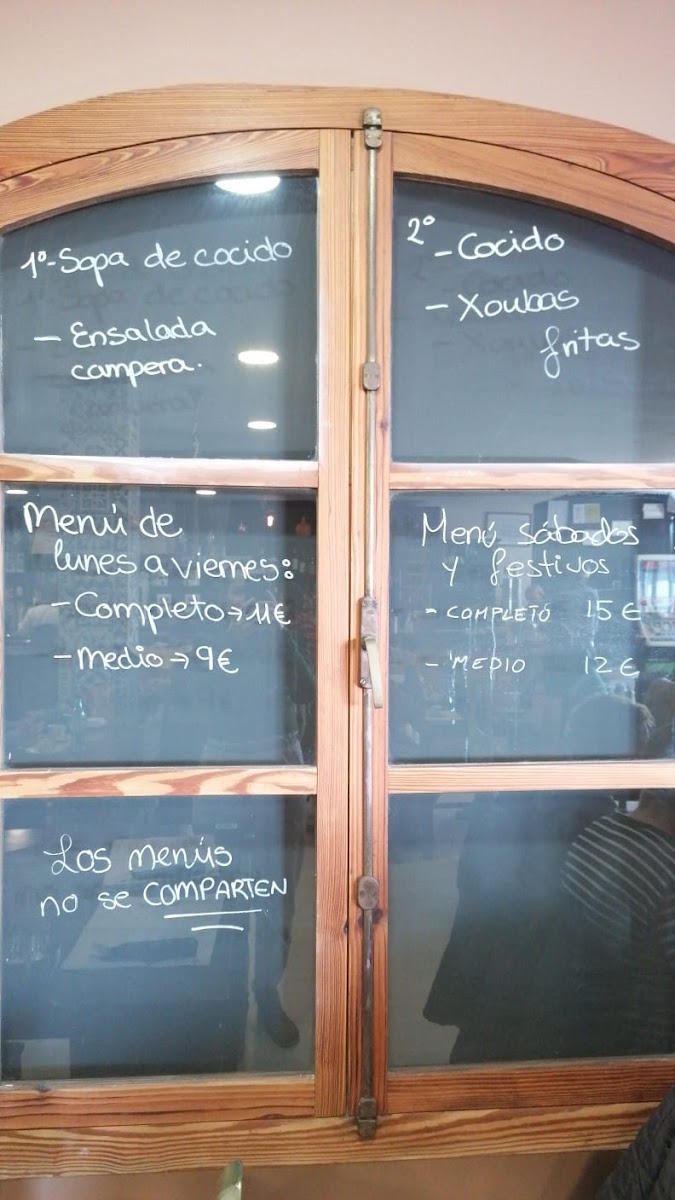 1º-Sopa de cocido
- Ensalada
campera.
2º
- Cocido
- Xoubas
fritas
Menú de
lunes a viernes:
- Completo → 11€
- Medio → 9€
Menú sábados
y festivos
- COMPLETO 15 €
- MEDIO 12 €
Los menús
no se COMPARTEN